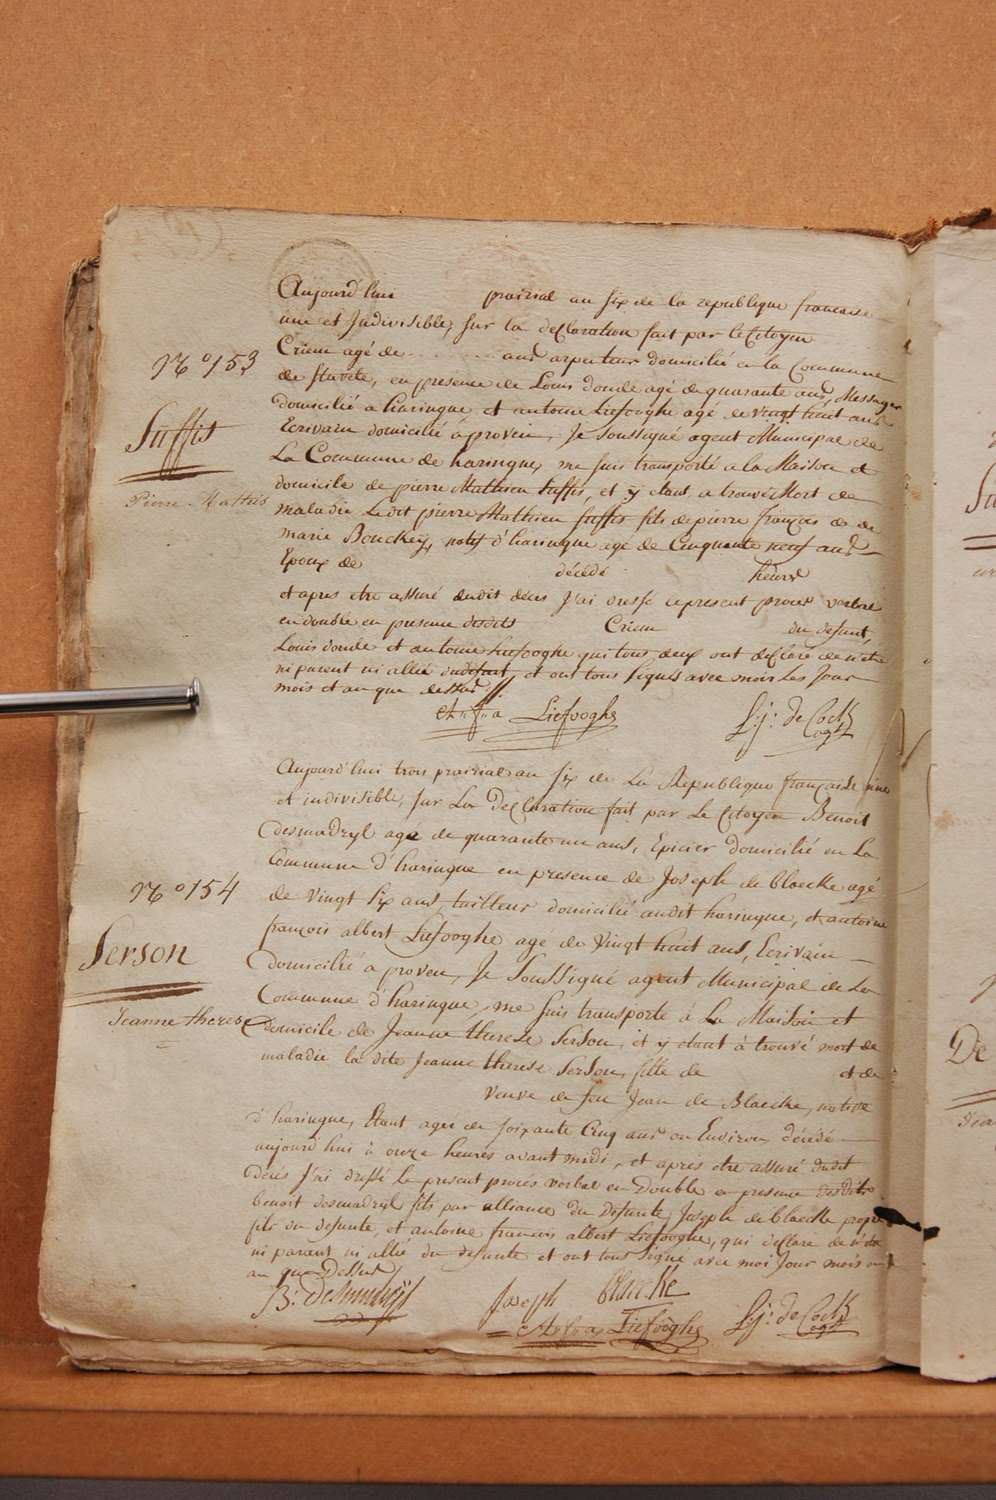 Aujourd'hui prairial an six de la republique francaise
une et Indivisible, sur la declaration fait par le Citoyen
N° 153
Criem agé de ans arpenteur domicilié a la Commune
de Stavele, en presence de Louis donde agé de quarante ans, Messager
Suffis
domicilié a haringue et antoine Liefooghe agé de vingt huit ans
Ecrivain domicilié à proven, Je soussigné agent Municipal de
La Commune de haringue, me suis transporté a la Maison et
Pierre Mathis
domicile de pierre Mathieu Suffis, et y etant a trouvé Mort de
maladie Ledit pierre Mathieu suffis fils de pierre françois de de
marie Bouckey, natif d'haringue agé de Cinquante neuf ans
Epoux de décédé heures
et apres etre assuré dudit deces J'ai dressé cepresent proces verbal
en double en presence desdits Criem du defunt,
Louis donde et antoine Liefooghe qui tous deux ont declaré de n'etre
ni parent ni allié dudefunt, et ont tous signés avec mois Les Jour
mois et an que dessus
Liefooghe S: J: de Cock
agt
Aujourd'hui trois prairial an six de La Republique française une
et indivisible, sur La Declaration fait par Le Citoyen Benoit
desmadryl agé de quarante un ans, Epicier domicilié en La
Commune d'haringue en presence de Joseph de blaecke agé
N° 154
de vingt six ans, tailleur domicilié audit haringue, et antoine
françois albert Liefooghe agé de Vingt huit ans, Ecrivain
Serson
domicilié a proven, Je Soussigné agent Municipal de La
Commune d'haringue, me suis transporté à La Maison et
Jeanne therese
domicile de Jeanne therese Serson, et y etant à trouvé mort de
maladie la dite Jeanne therese Serson, fille de et de
Veuve de feu Jean de Blaecke, native
d'haringue, Etant agée de soixante Cinq ans ou Environ décédé
aujourd'hui à onze heures avant midi, et après etre assuré dudit
décés J'ai dressé le present procès verbal en Double en presence desdits
benoit desmadryl fils par alliance du defunte, Joseph de blaecke propre
fils du defunte, et antoine francois albert Liefooghe, qui declare de n'etre
ni parent ni allié du defunte et ont tous signé avec moi Jour mois
an que Dessus
B: Desmadryl Joseph blaecke
Liefooghe S: J: de Cock
agt